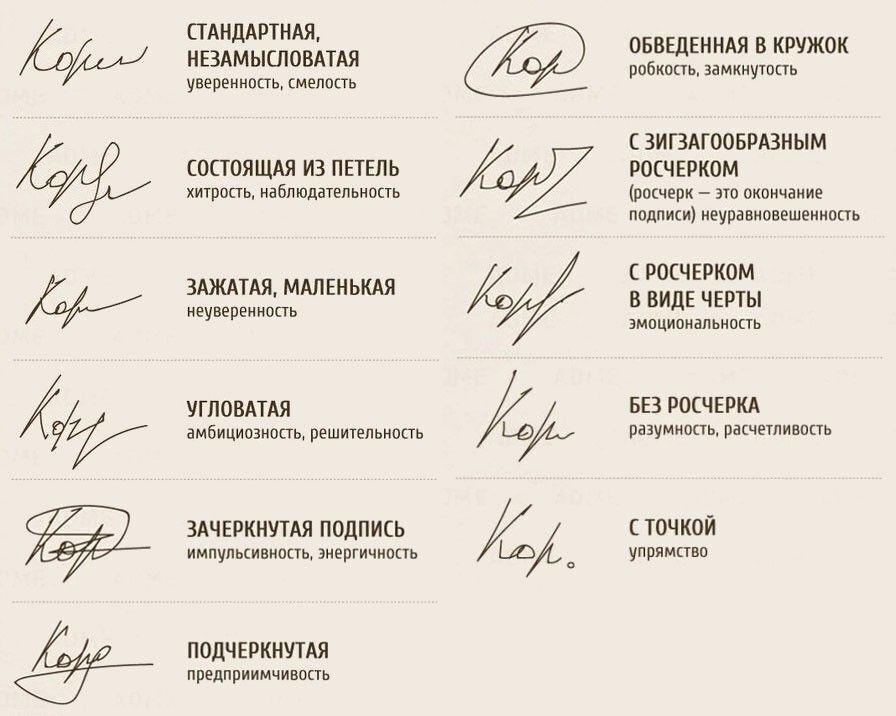 Корин
СТАНДАРТНАЯ,
НЕЗАМЫСЛОВАТАЯ
уверенность, смелость
Кор
СОСТОЯЩАЯ ИЗ ПЕТЕЛЬ
хитрость, наблюдательность
Кор
ЗАЖАТАЯ, МАЛЕНЬКАЯ
неуверенность
Кор
УГЛОВАТАЯ
амбициозность, решительность
Кор
ЗАЧЕРКНУТАЯ ПОДПИСЬ
импульсивность, энергичность
Кор
ПОДЧЕРКНУТАЯ
предприимчивость
Кор
ОБВЕДЕННАЯ В КРУЖОК
робкость, замкнутость
Кор
С ЗИГЗАГООБРАЗНЫМ
РОСЧЕРКОМ
(росчерк — это окончание
подписи) неуравновешенность
Кор
С РОСЧЕРКОМ
В ВИДЕ ЧЕРТЫ
эмоциональность
Кор
БЕЗ РОСЧЕРКА
разумность, расчетливость
Кор.
С ТОЧКОЙ
упрямство